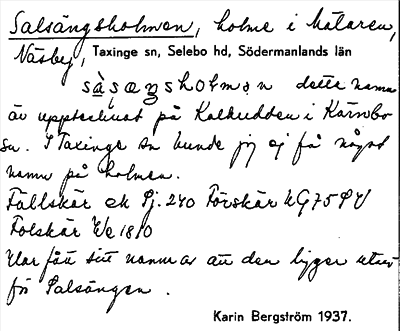 Salsängsholmen, holme i Mälaren,
Näsby, Taxinge sn, Selebo hd, Södermanlands län
detta namn
är upptecknat på Kalkudden i Kärnbo
sn. I Taxinge sn kunde jag ej få något
namn på holmen.
Fallskär ek Sj. 240 Förskär
Folskär 1810
Har fått sitt namn av att den ligger utan-
för Salsängen.
Karin Bergström 1937.